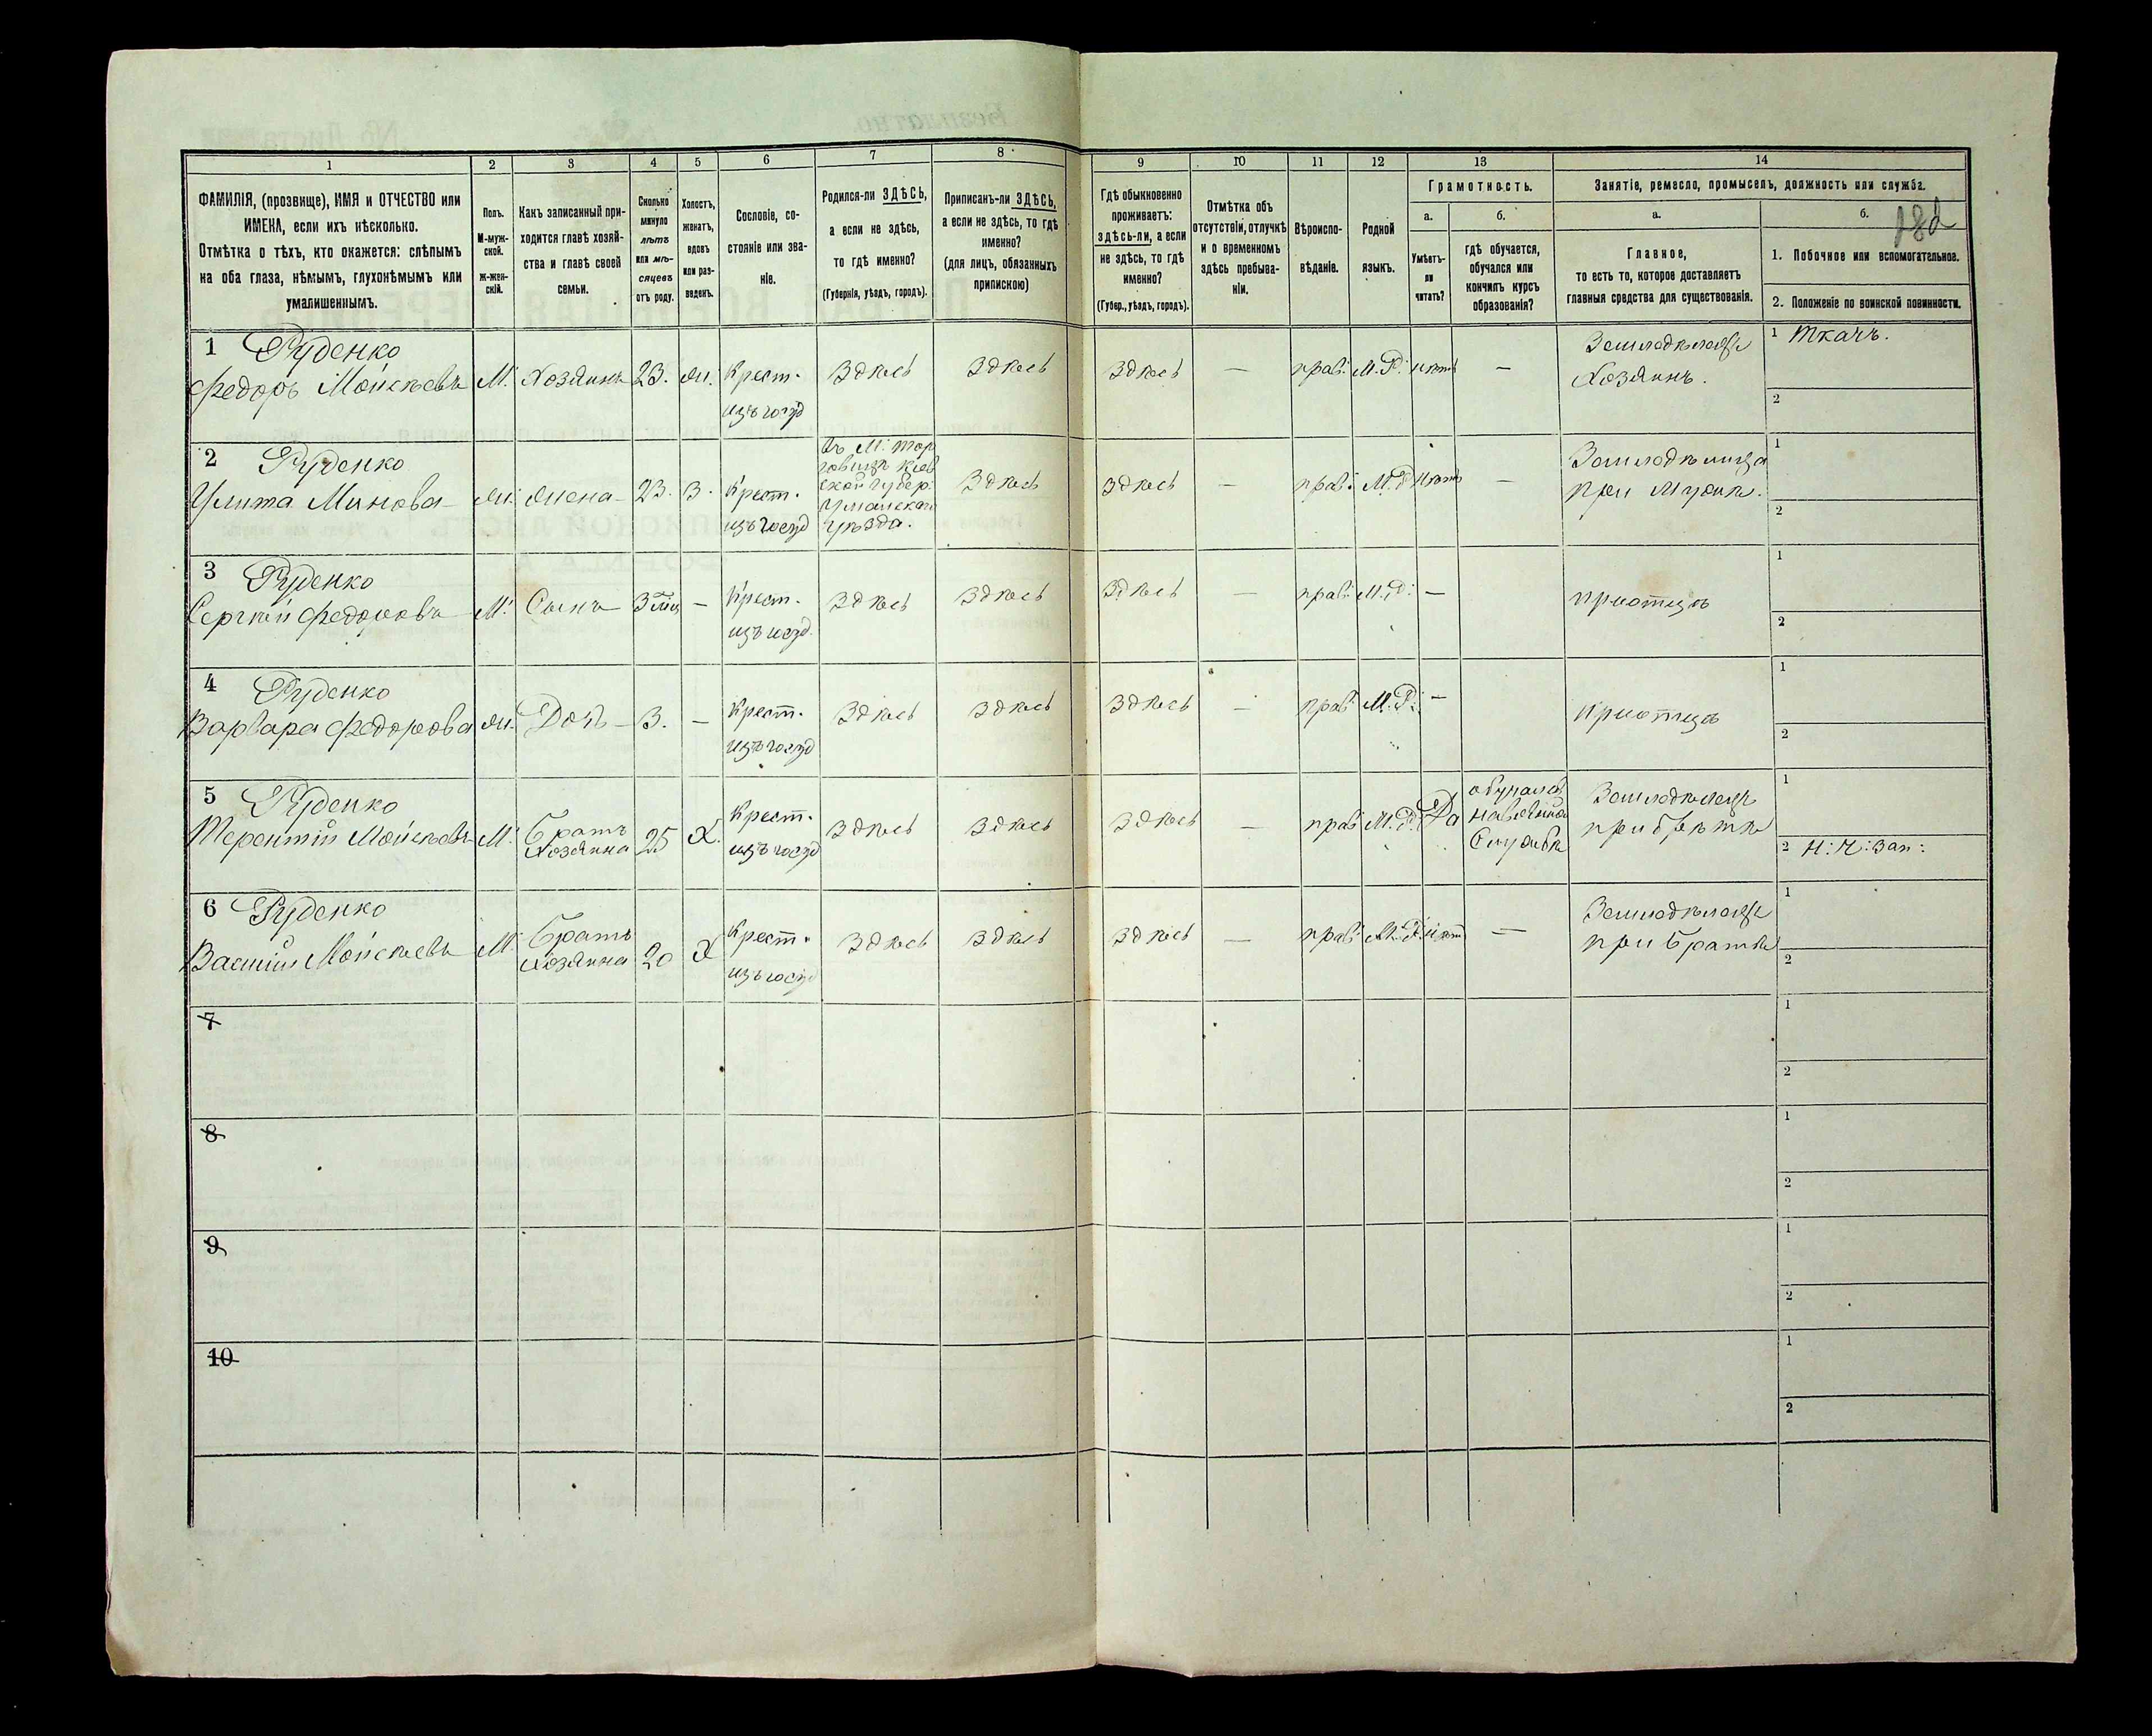 1 2 3 4 5 6 7 8 9 10 11 12 13 14
ФАМИЛІЯ, (прозвище), ИМЯ и ОТЧЕСТВО или
ИМЕНА, если ихъ нѣсколько.
Отмѣтка о тѣхъ, кто окажется: слѣпымъ
на оба глаза, нѣмымъ, глухонѣмымъ или
умалишеннымъ.
Полъ.
М-муж-
ской.
Ж-жен-
скій.
Какъ записанный при-
ходится главѣ хозяй-
ства и главѣ своей
семьи.
Сколько
минуло
лѣтъ
или мѣ-
сяцевъ
отъ роду.
Холостъ,
женатъ,
вдовъ
или раз-
веденъ.
Сословіе, со-
стояніе или зва-
ніе.
Родился-ли ЗДѢСЬ,
а если не здѣсь,
то гдѣ именно?
(Губернія, уѣздъ, городъ).
Приписанъ-ли ЗДѢСЬ,
а если не здѣсь, то гдѣ
именно?
(для лицъ, обязанныхъ
припискою)
Гдѣ обыкновенно
проживаетъ:
здѣсь-ли, а если
не здѣсь, то гдѣ
именно?
(Губер., уѣздъ, городъ).
Отмѣтка объ
отсутствіи, отлучкѣ
и о временномъ
здѣсь пребыва-
ніи.
Вѣроиспо-
вѣданіе.
Родной
языкъ.
Грамотность.
а.
Умѣетъ-
ли
читать?
б.
гдѣ обучается,
обучался или
кончилъ курсъ
образованія?
Занятіе, ремесло, промыселъ, должность или служба.
а.
Главное,
то есть то, которое доставляетъ
главныя средства для существованія.
б.
1. Побочное или вспомогательное.
2. Положеніе по воинской повинности.
1 Руденко
Федоръ Мойсѣевъ М. Хозяинъ 23. Ж. Крест.
изъ госуд
Здѣсь Здѣсь Здѣсь — прав: М.Р. нѣтъ —
Земледѣлецъ
Хозяинъ.
1 Ткачъ.
2
2 Руденко
Улита Минова Ж. Жена 23. З. Крест.
изъ госуд
Въ М. Тор
говицѣ Кіев
ской губер:
Уманскаго
уѣзда.
Здѣсь Здѣсь — прав: М.Р. нѣтъ —
Земледѣлица
при мужѣ.
1
2
3 Руденко
Сергѣй Федоровъ М. Сынъ — Крест.
изъ госуд.
Здѣсь Здѣсь Здѣсь — прав: М.Р: —
при отцѣ
1
2
4 Руденко
Варвара Федорова Ж. Дочь 3. — Крест.
изъ госуд
Здѣсь Здѣсь Здѣсь — прав: М.Р: —
при отцѣ
1
2
5 Руденко
Терентій Мойсѣевъ М. Братъ
Хозяина
25 Х. Крест.
изъ госуд
Здѣсь Здѣсь Здѣсь — прав: М.Р. Да
обучался
на военной
Службѣ
Земледѣлецъ
при братѣ
1
2 Н: Ч: Зап:
6 Руденко
Василій Мойсѣевъ М. Братъ
Хозяина
20 Х Крест.
изъ госуд
Здѣсь Здѣсь Здѣсь — прав: М.Р. нѣтъ —
Земледѣлецъ
при братѣ
1
2
7
1
2
8
1
2
9
1
2
10
1
2